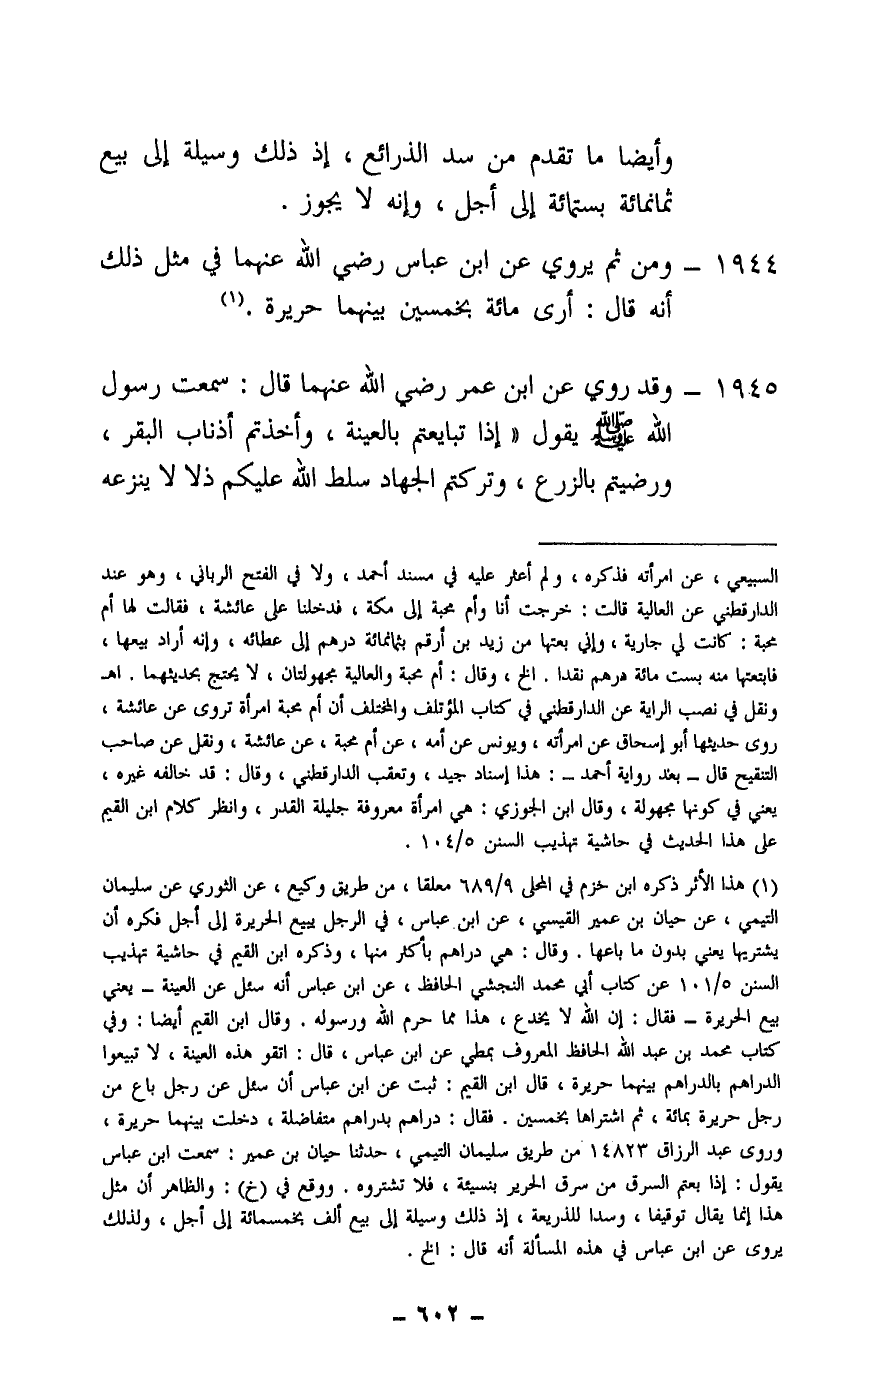 وأيضا ما تقدم من سد الذرائع ، إذ ذلك وسيلة إلى بيع
ثمانمائة بستمائة إلى أجل ، وإنه لا يجوز .
١٩٤٤ – ومن ثم يروي عن ابن عباس رضي الله عنهما في مثل ذلك
أنه قال : أرى مائة بخمسين بينهما حريرة .(١)
١٩٤٥ – وقد روي عن ابن عمر رضي الله عنهما قال : سمعت رسول
الله ﷺ يقول « إذا تبايعتم بالعينة ، وأخذتم أذناب البقر ،
ورضيتم بالزرع ، وتركتم الجهاد سلط الله عليكم ذلا لا ينزعه
السبيعي ، عن امرأته فذكره ، ولم أعثر عليه في مسند أحمد ، ولا في الفتح الرباني ، وهو عند
الدارقطني عن العالية قالت : خرجت أنا وأم محبة إلى مكة ، فدخلنا على عائشة ، فقالت لها أم
محبة : كانت لي جارية ، وإني بعتها من زيد بن أرقم بثمانمائة درهم إلى عطائه ، وإنه أراد بيعها ،
فابتعتها منه بست مائة درهم نقدا . الخ ، وقال : أم محبة والعالية مجهولتان ، لا يحتج بحديثهما . اهـ
ونقل في نصب الراية عن الدارقطني في كتاب المؤتلف والمختلف أن أم محبة امرأة تروى عن عائشة ،
روى حديثها أبو إسحاق عن امرأته ، ويونس عن أمه ، عن أم محبة ، عن عائشة ، ونقل عن صاحب
التنقيح قال – بعد رواية أحمد – : هذا إسناد جيد ، وتعقب الدارقطني ، وقال : قد خالفه غيره ،
يعني في كونها مجهولة ، وقال ابن الجوزي : هي امرأة معروفة جليلة القدر ، وانظر كلام ابن القيم
على هذا الحديث في حاشية تهذيب السنن ١٠٤/٥ .
(١) هذا الأثر ذكره ابن خزم في المحلى ٦٨٩/٩ معلقا ، من طريق وكيع ، عن الثوري عن سليمان
التيمي ، عن حيان بن عمير القيسي ، عن ابن عباس ، في الرجل يبيع الحريرة إلى أجل فكره أن
يشتريها يعني بدون ما باعها . وقال : هي دراهم بأكثر منها ، وذكره ابن القيم في حاشية تهذيب
السنن ١٠١/٥ عن كتاب أبي محمد النجشي الحافظ ، عن ابن عباس أنه سئل عن العينة – يعني
بيع الحريرة – فقال : إن الله لا يخدع ، هذا مما حرم الله ورسوله . وقال ابن القيم أيضا : وفي
كتاب محمد بن عبد الله الحافظ المعروف بمطي عن ابن عباس ، قال : اتقو هذه العينة ، لا تبيعوا
الدراهم بالدراهم بينهما حريرة ، قال ابن القيم : ثبت عن ابن عباس أن سئل عن رجل باع من
رجل حريرة بمائة ، ثم اشتراها بخمسين . فقال : دراهم بدراهم متفاضلة ، دخلت بينهما حريرة ،
وروى عبد الرزاق ١٤٨٢٣ من طريق سليمان التيمي ، حدثنا حيان بن عمير : سمعت ابن عباس
يقول : إذا بعتم السرق من سرق الحرير بنسيئة ، فلا تشتروه . ووقع في (خ) : والظاهر أن مثل
هذا إنما يقال توقيفا ، وسدا للذريعة ، إذ ذلك وسيلة إلى بيع ألف بخمسمائة إلى أجل ، ولذلك
يروى عن ابن عباس في هذه المسألة أنه قال : الخ .
– ٦٠٢ –